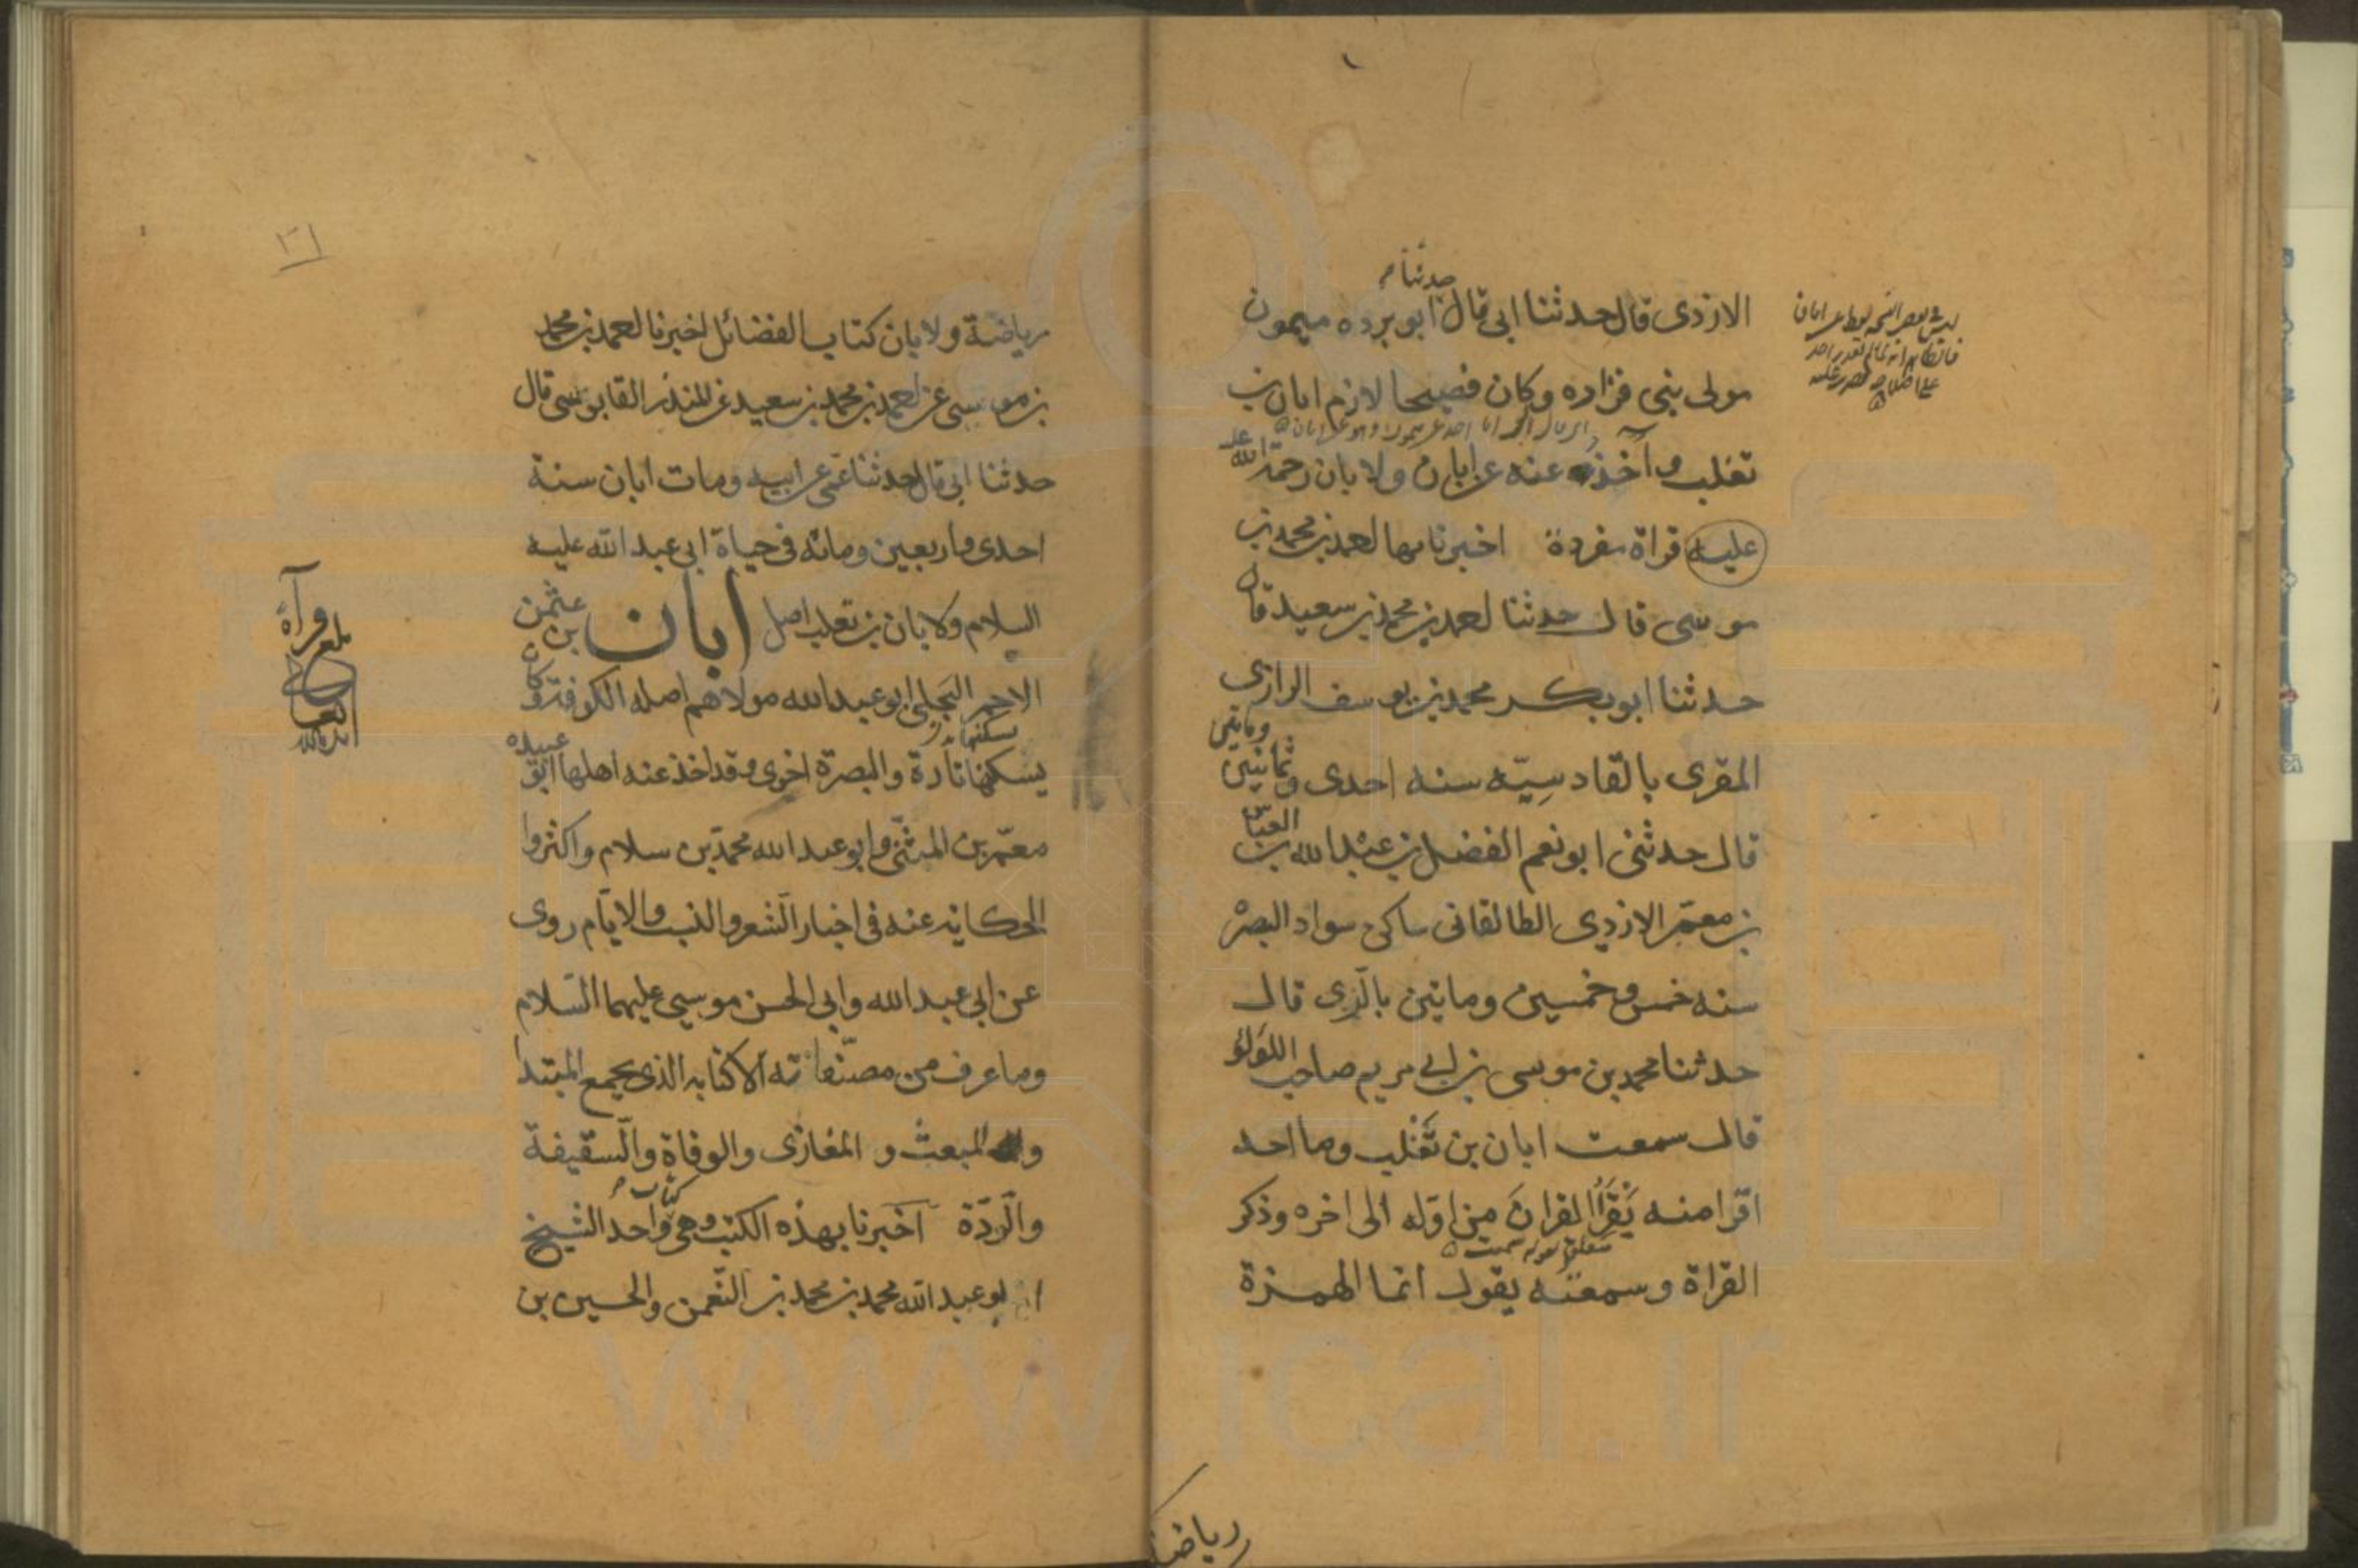 حدثنا م
الازدى قال حدثنا ابى قال ابو برده ميمون
مولى بنى فزاره وكان فصيحا لازم ابان بن
تغلب واخذ عنه عن ابان ولابان رحمة الله
عليه قراة مفردة اخبرنا بها احمد بن محمد بن
موسى قال حدثنا احمد بن محمد بن سعيد قال
حدثنا ابو بكر محمد بن يوسف الرازى
المقرى بالقادسيّه سنه احدى وثمانين ومايتى
قال حدثنى ابو نعم الفضل بن عبد الله بن العباس
بن معمّر الازدى الطالقانى ساكن سواد البصرة
سنه خمس وخمسين ومايتين بالرّى قال
حدثنا محمد بن موسى بن ابى مريم صاحب اللولو
قال سمعت ابان بن تَغْلِب وما احد
اقرا منه يَقْرَأُ القرانَ من اوّله الى اخره وذكر
القراة وسمعته يقول انما الهمزة
رياضة
٢١
رياضة ولابان كتاب الفضائل اخبرنا احمد بن محمد
بن موسى عن احمد بن محمد بن سعيد عن المنذر القابوسى قال
حدثنا ابى قال حدثنا عمّى عن ابيه ومات ابان سنة
احدى واربعين ومائه فى حياة ابى عبد الله عليه
السلام ولابان بن تغلب اصل ابان بن عثمن
الاحمر البَجلى ابو عبد الله مولاهم اصله الكوفة وكان
يسكنها تارة والبصرة اخرى وقد اخذ عنه اهلها ابو عبيده
معمّر بن المثنّى وابو عبد الله محمّد بن سلام واكثروا
الحكاية عنه فى اخبار الشعر والنسب والايّام روى
عن ابى عبد الله وابى الحسن موسى عليهما السّلام
وما عرف من مصنّفاته الا كتابه الذى يجمع المبتدا
والمبعث و المغازى والوفاة والسّقيفة
والرّدّة اخبرنا بهذه الكتب وهى كتاب واحد الشيخ
ابو عبد الله محمد بن محمد بن النّعمن والحسين بن
www.ical.ir